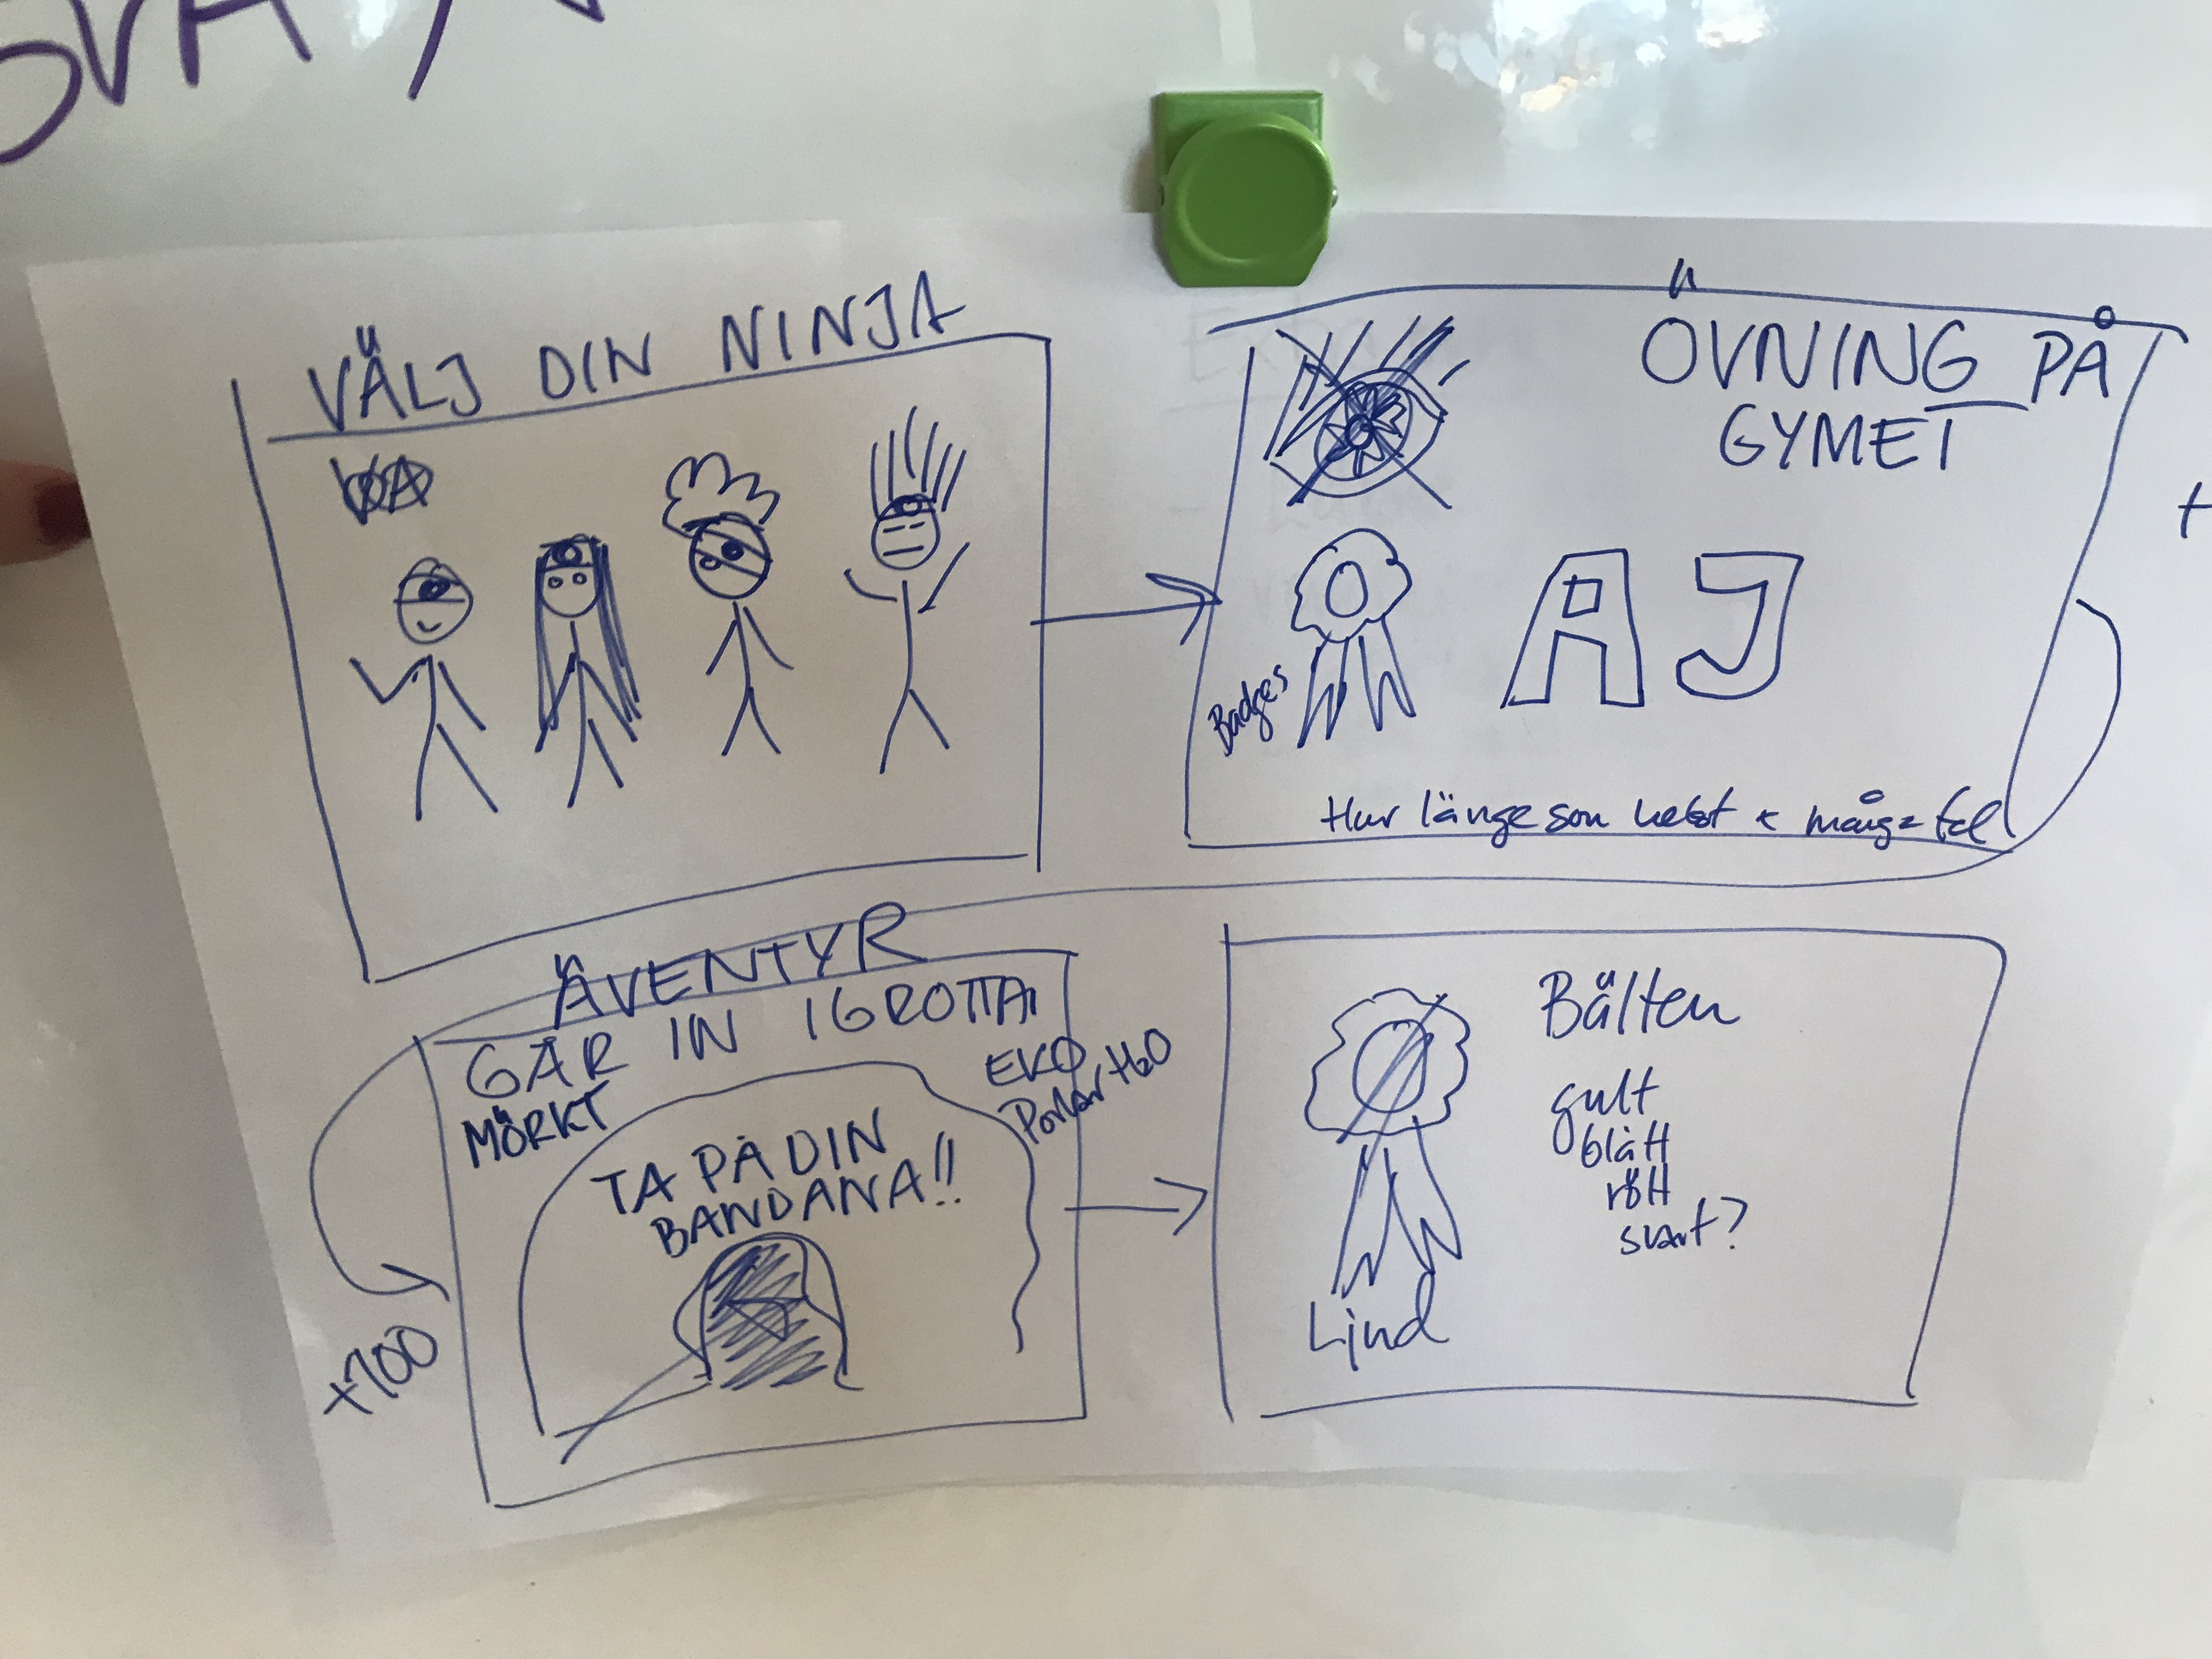 VÄLJ DIN NINJA
ÖVNING PÅ
GYMET
Badges
AJ
Hur länge som helst & många fel
ÄVENTYR
GÅR IN I GROTTA
MÖRKT
EKO
Porlar H2O
TA PÅ DIN
BANDANA!!
+100
Bälten
gult
blått
rött
svart?
Ljud